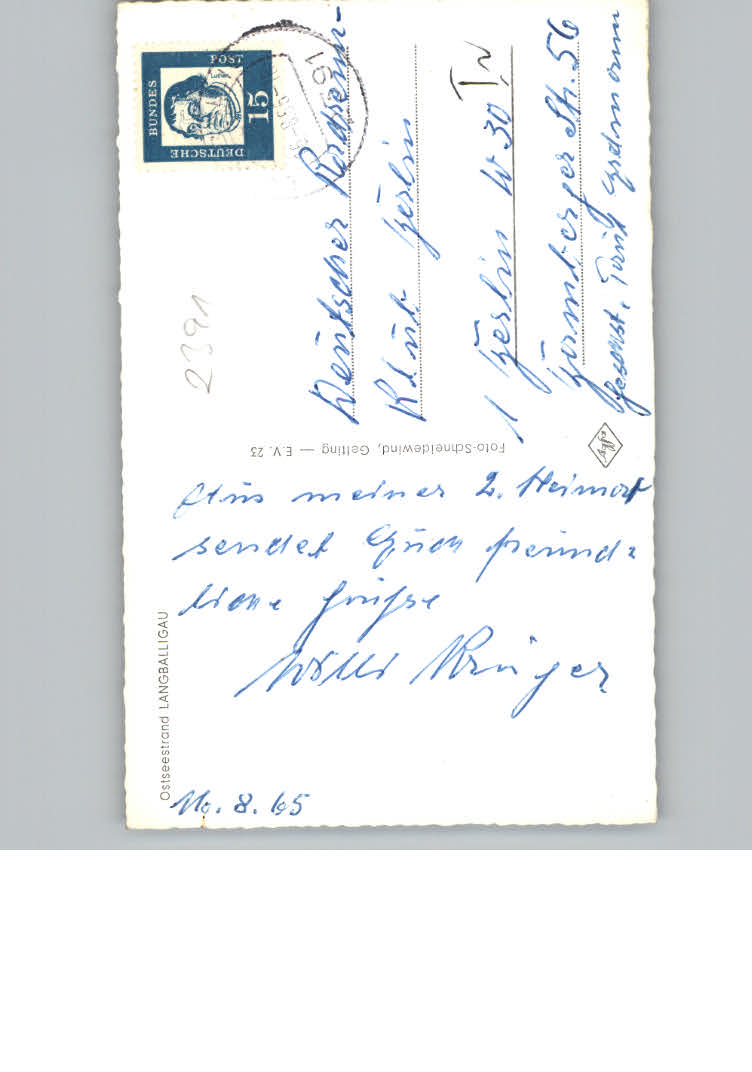 Ostseestrand LANGBALLIGAU
16. 8. 65
Aus meiner 2. Heimat
sendet Euch freund=
liche Grüße
Willi Krüger
Foto-Schneidewind, Gelting — E.V. 23
Agfa
DEUTSCHE
BUNDES
POST
15
LUTHER
2391
Deutscher
Klub Berlin
1 Berlin W 30
Bamberger Str. 56
Geschst. Erdmann